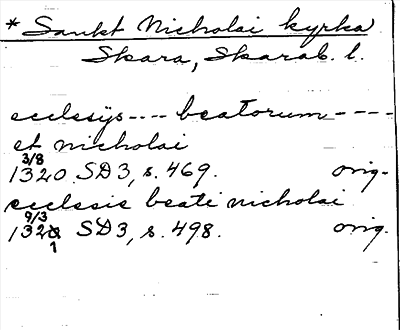 * Sankt Nicholai kyrka
Skara, Skarab. l.
ecclesijs---- beatorum----
et nicholai
3/8
1320. SD3, s. 469. orig.
ecclesie beati nicholai
9/3
1321 SD3, s. 498. orig.